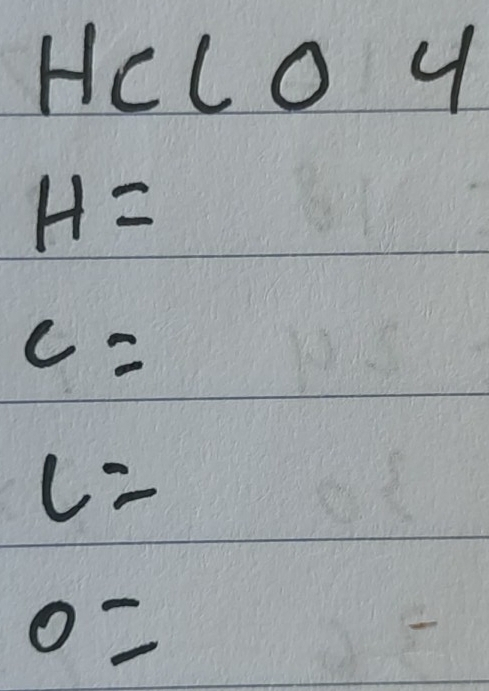 HCl O 4
H =
C =
l =
O =